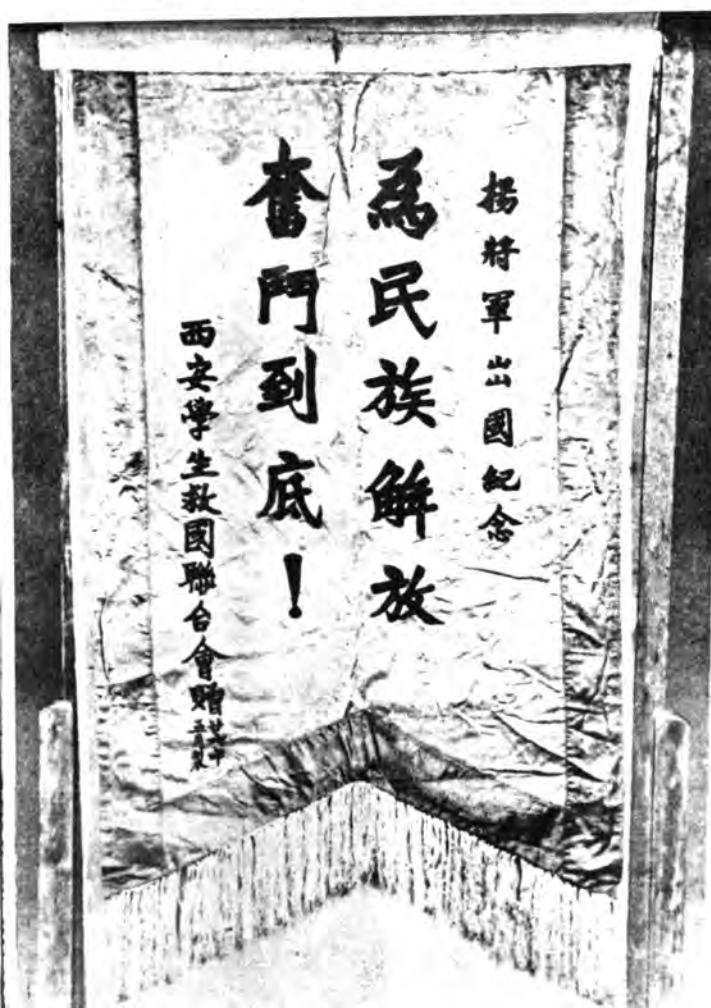 楊將軍出國紀念
為民族解放
奮鬥到底！
西安學生救國聯合會贈